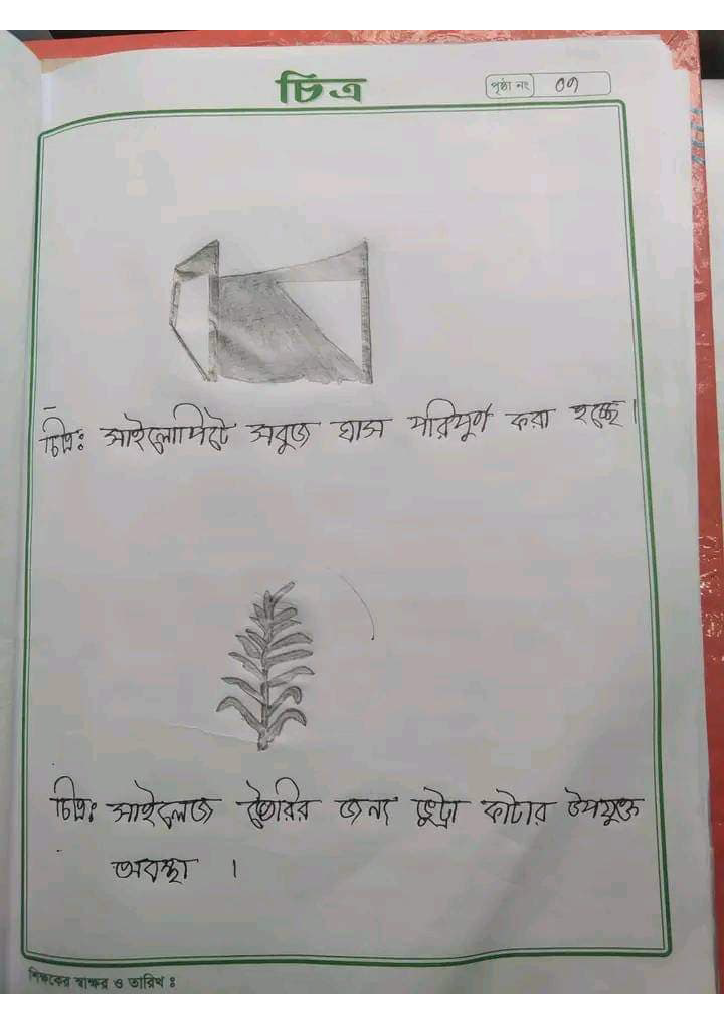 চিত্র
পৃষ্ঠা নং ০৭
চিত্রঃ সাইলোপিটে সবুজ ঘাস পরিপুর্ণ করা হচ্ছে।
চিত্রঃ সাইলেজ তৈরির জন্য ভুট্টা কাটার উপযুক্ত
অবস্থা ।
শিক্ষকের স্বাক্ষর ও তারিখ ঃ